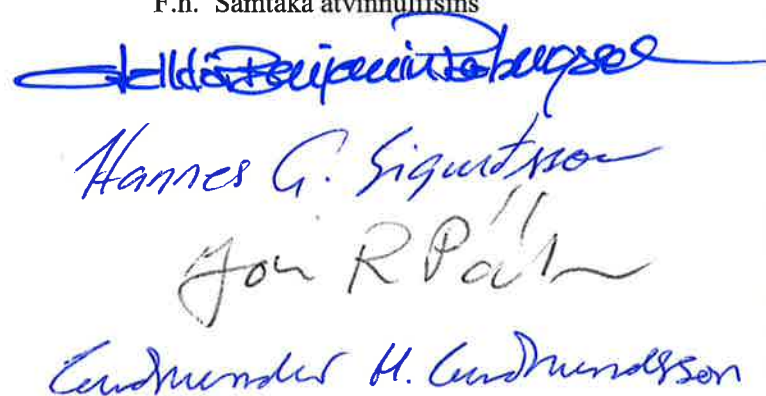 F.h. Samtaka atvinnulífsins
Halldór Benjamín Þorbergsson
Hannes G. Sigurðsson
Jón R Pál
Guðmundur H. Guðmundsson